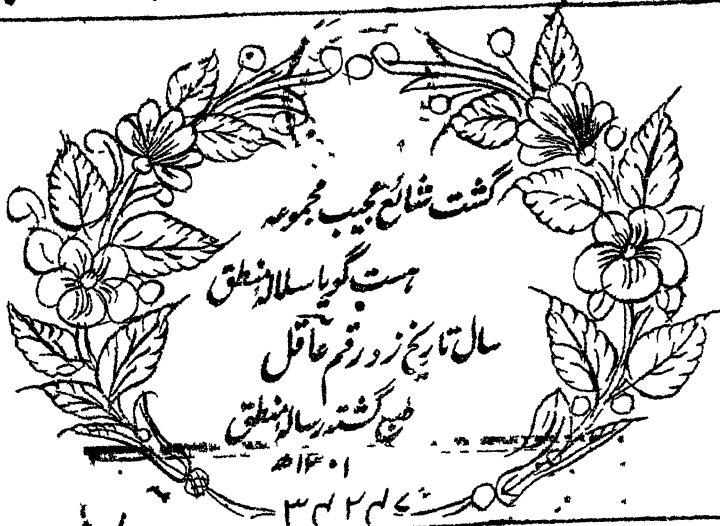 گشت شائع عجیب مجموعہ
ہست گویا سلالۂ منطق
سال تاریخ زد رقم عاقل
طبع گشتہ رسالۂ منطق
۱۴۰۱ھ